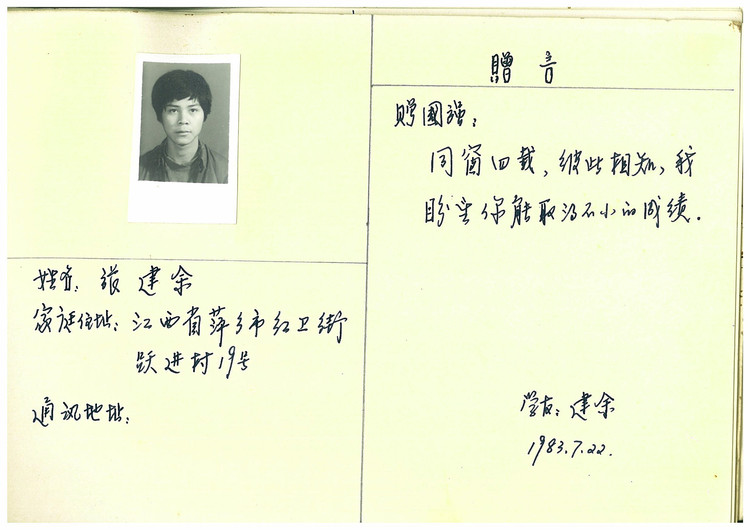 姓名：张建余
家庭住址：江西省萍乡市红卫街
跃进村19号
通讯地址：
贈言
赠國强：
同窗四载，彼此相知，我
盼望你能取得不小的成绩．
学友：建余
1983.7.22.